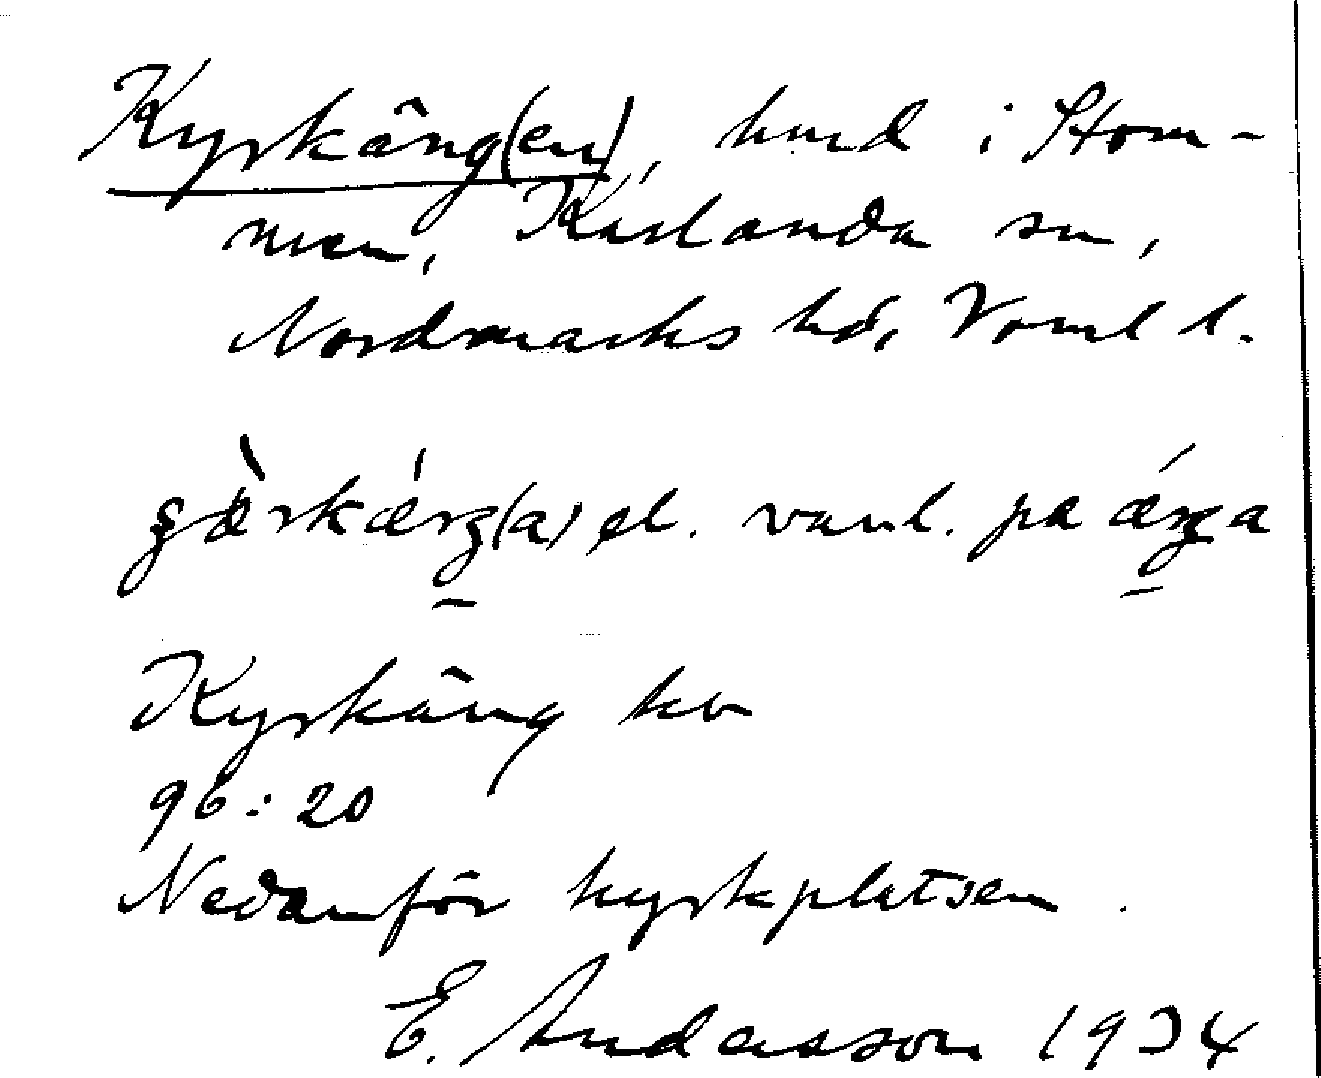 Kyrkäng(en), hmd i Stom-
men, Karlanda sn,
Nordmarks hd, Vrml l.
el. vanl. på
Kyrkäng ko
96:20
Nedanför kyrkplatsen.
E. Andersson 1934